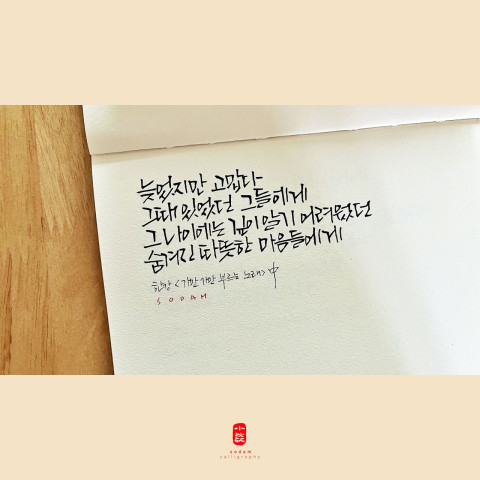 늦었지만 고맙다
그때 있었던 그들에게
그 나이에는 깊이 알기 어려웠던
숨겨진 따뜻한 마음들에게
한강 <가만가만 부르는 노래> 中
SODAM
sodam
calligraphy